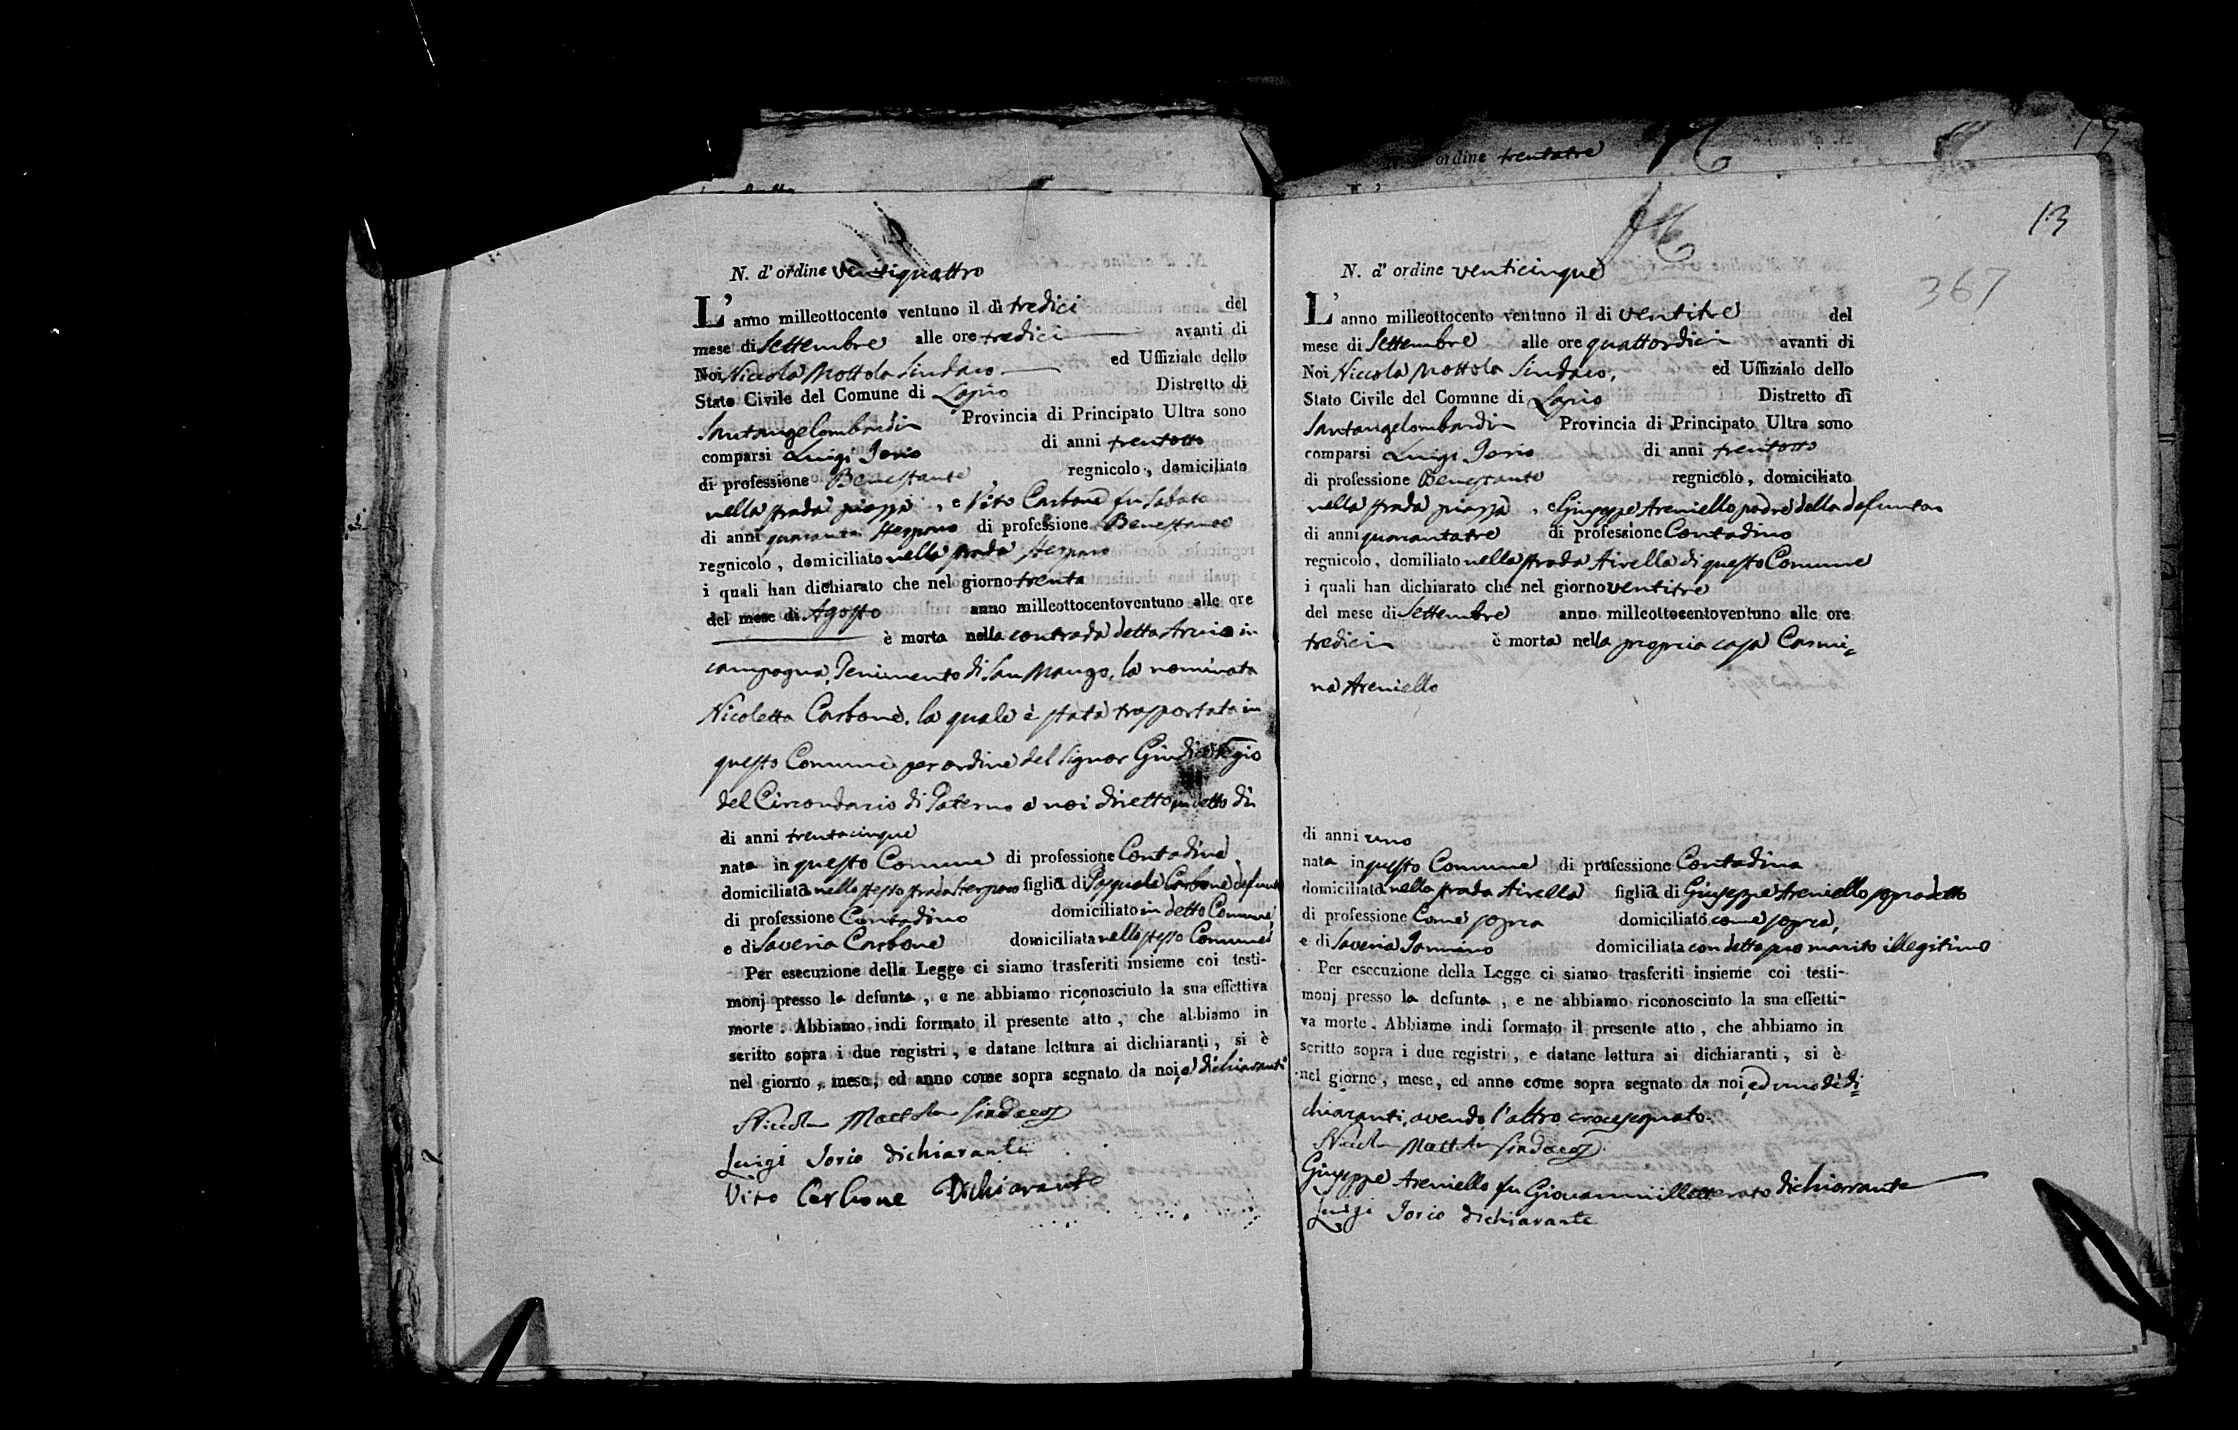 ordine trentatre
N. d' ordine ventiquattro
L' anno milleottocento ventuno il dì tredici del
mese di Settembre alle ore tredici avanti di
Noi Niccola Mottola Sindaco ed Uffiziale dello
Stato Civile del Comune di Lapio Distretto di
Santangelombardi Provincia di Principato Ultra sono
comparsi Luigi Iorio di anni trentotto
di professione Benestante regnicolo, domiciliato
nella strada piazza, e Vito Carbone fu Sabato
di anni quaranta di professione Benestante
regnicolo, domiciliato nella strada
i quali han dichiarato che nel giorno trenta
del mese di Agosto anno milleottocentoventuno alle ore
è morta nella contrada detta in
campagna, Tenimento di San Mango, la nominata
Nicoletta Carbone, la quale è stata trasportata in
questo Comune per ordine del Signor Giudice Regio
del Circondario di Paterno a noi diretto in detto dì
di anni trentacinque
nata in questo Comune di professione Contadina
domiciliata nella stessa strada figlia di Pasquale Carbone defunto
di professione Contadino domiciliato in detto Comune
e di Saveria Carbone domiciliata nello stesso Comune
Per esecuzione della Legge ci siamo trasferiti insieme coi testi-
monj presso la defunta, e ne abbiamo riconosciuto la sua effettiva
morte. Abbiamo indi formato il presente atto, che abbiamo in
scritto sopra i due registri, e datane lettura ai dichiaranti, si è
nel giorno, mese, ed anno come sopra segnato da noi, e dichiaranti
Niccola Mottola Sindaco
Luigi Iorio dichiarante
Vito Carbone Dichiarante
13
367
N. d' ordine venticinque
L' anno milleottocento ventuno il di ventitre del
mese di Settembre alle ore quattordici avanti di
Noi Niccola Mottola Sindaco, ed Uffiziale dello
Stato Civile del Comune di Lapio Distretto di
Santangelombardi Provincia di Principato Ultra sono
comparsi Luigi Iorio di anni trentotto
di professione Benestante regnicolo, domiciliato
nella strada piazza, e Giuseppe Areniello padre della defunta
di anni quarantatre di professione Contadino
regnicolo, domiliato nella strada Airella di questo Comune
i quali han dichiarato che nel giorno ventitre
del mese di Settembre anno milleottocentoventuno alle ore
tredici è morta nella propria casa Carmi=
na Areniello
di anni uno
nata in questo Comune di professione Contadina
domiciliata nella strada Airella figlia di Giuseppe Areniello sopradetto
di professione Come sopra domiciliato come sopra,
e di Saveria Iannino domiciliata con detto suo marito illegitimo
Per esecuzione della Legge ci siamo trasferiti insieme coi testi-
monj presso la defunta, e ne abbiamo riconosciuto la sua effetti-
va morte. Abbiamo indi formato il presente atto, che abbiamo in
scritto sopra i due registri, e datane lettura ai dichiaranti, si è
nel giorno, mese, ed anno come sopra segnato da noi, ed uno de di=
chiaranti, avendo l'altro crocesegnato.
Niccola Mottola Sindaco
Giuseppe Areniello fu Giovanni illetterato dichiarante
Luigi Iorio dichiarante